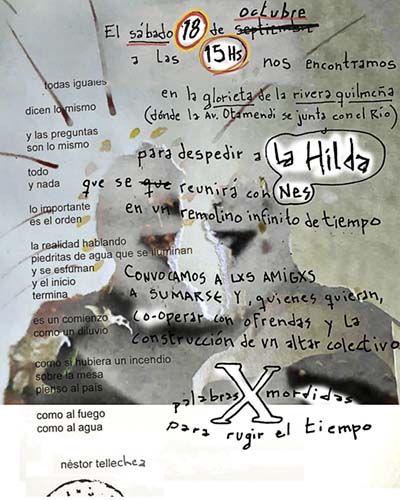 El sábado 18 de septiembre octubre
a las 15Hs nos encontramos
en la glorieta de la rivera quilmeña
(dónde la Av. Otamendi se junta con el Río)
para despedir a La Hilda
que se que reunirá con Nes
en un remolino infinito de tiempo
CONVOCAMOS A LXS AMIGXS
A SUMARSE Y, quienes quieran,
co-operar con ofrendas y la
construcción de un altar colectivo
palabras X mordidas
para rugir el tiempo
todas iguales
dicen lo mismo
y las preguntas
son lo mismo
todo
y nada
lo importante
es el orden
la realidad hablando
piedritas de agua que se iluminan
y se esfuman
y el inicio
termina
es un comienzo
como un diluvio
como si hubiera un incendio
sobre la mesa
pienso al país
como al fuego
como al agua
néstor tellechea